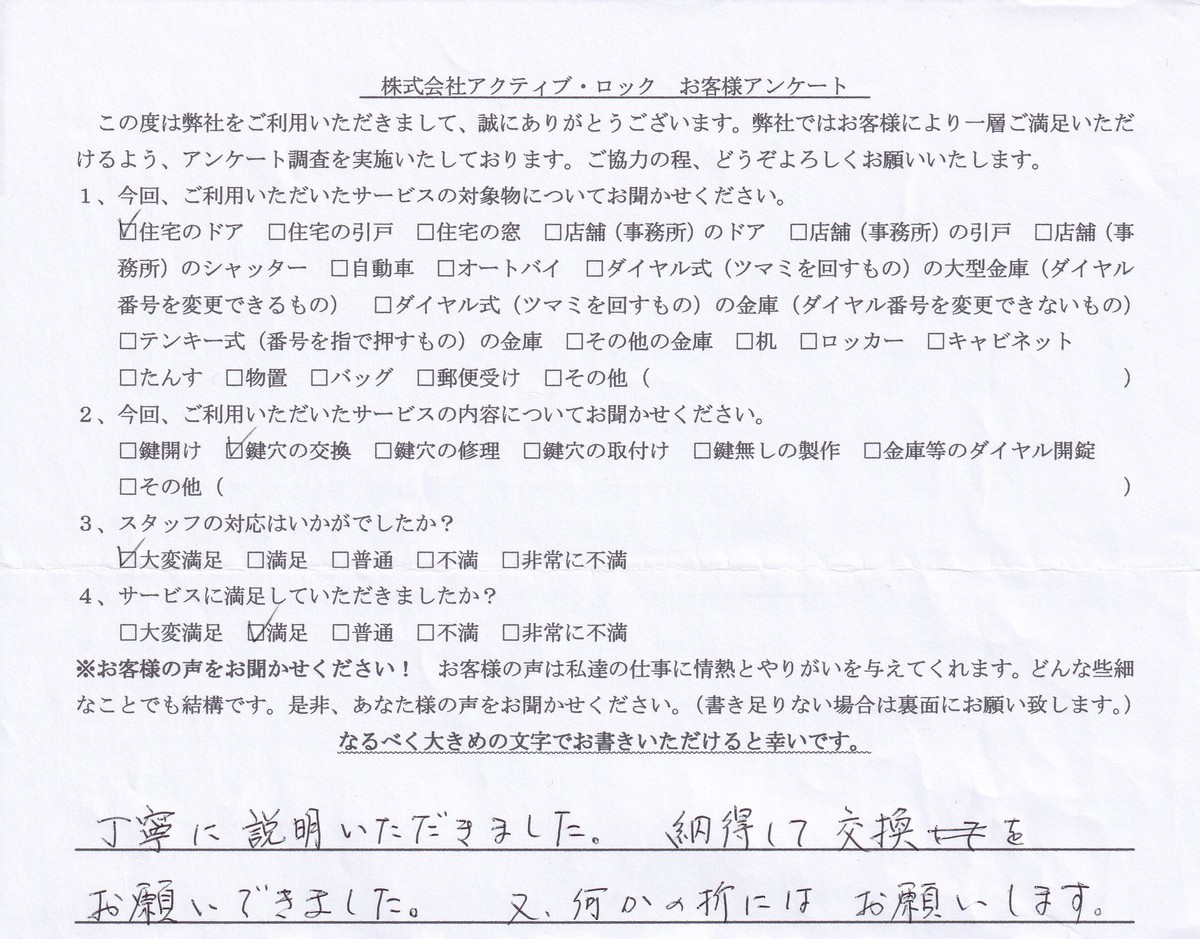 株式会社アクティブ・ロック　お客様アンケート
この度は弊社をご利用いただきまして、誠にありがとうございます。弊社ではお客様により一層ご満足いただ
けるよう、アンケート調査を実施いたしております。ご協力の程、どうぞよろしくお願いいたします。
１、今回、ご利用いただいたサービスの対象物についてお聞かせください。
☑住宅のドア　□住宅の引戸　□住宅の窓　□店舗（事務所）のドア　□店舗（事務所）の引戸　□店舗（事
務所）のシャッター　□自動車　□オートバイ　□ダイヤル式（ツマミを回すもの）の大型金庫（ダイヤル
番号を変更できるもの）　□ダイヤル式（ツマミを回すもの）の金庫（ダイヤル番号を変更できないもの）
□テンキー式（番号を指で押すもの）の金庫　□その他の金庫　□机　□ロッカー　□キャビネット
□たんす　□物置　□バッグ　□郵便受け　□その他（　　　）
２、今回、ご利用いただいたサービスの内容についてお聞かせください。
□鍵開け　☑鍵穴の交換　□鍵穴の修理　□鍵穴の取付け　□鍵無しの製作　□金庫等のダイヤル開錠
□その他（　　　）
３、スタッフの対応はいかがでしたか？
☑大変満足　□満足　□普通　□不満　□非常に不満
４、サービスに満足していただきましたか？
□大変満足　☑満足　□普通　□不満　□非常に不満
※お客様の声をお聞かせください！　お客様の声は私達の仕事に情熱とやりがいを与えてくれます。どんな些細
なことでも結構です。是非、あなた様の声をお聞かせください。（書き足りない場合は裏面にお願い致します。）
なるべく大きめの文字でお書きいただけると幸いです。
丁寧に説明いただきました。　納得して交換を
お願いできました。　又、何かの折には　お願いします。